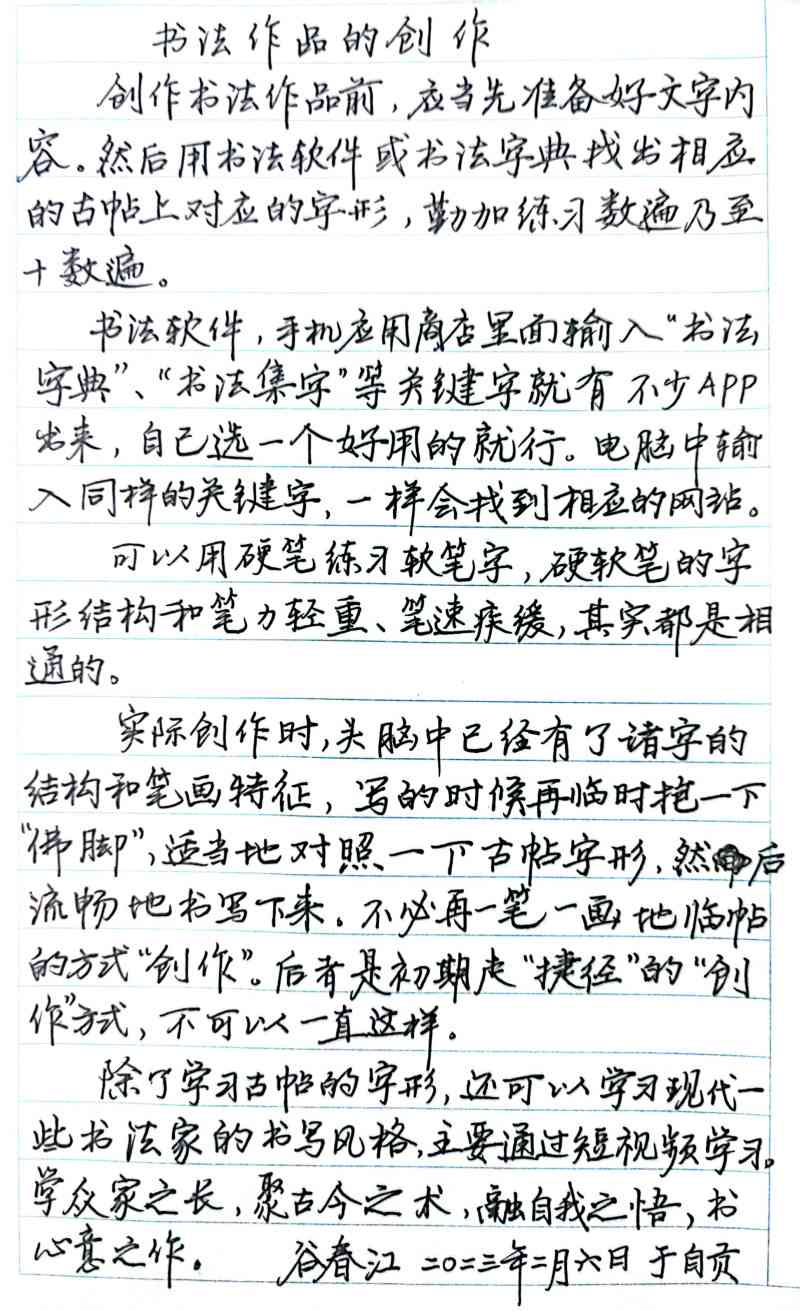 书法作品的创作
创作书法作品前，应当先准备好文字内
容。然后用书法软件或书法字典找出相应
的古帖上对应的字形，勤加练习数遍乃至
十数遍。
书法软件，手机应用商店里面输入“书法
字典”、“书法集字”等关键字就有不少APP
出来，自己选一个好用的就行。电脑中输
入同样的关键字，一样会找到相应的网站。
可以用硬笔练习软笔字，硬软笔的字
形结构和笔力轻重、笔速疾缓，其实都是相
通的。
实际创作时，头脑中已经有了诸字的
结构和笔画特征，写的时候再临时抱一下
“佛脚”，适当地对照一下古帖字形，然后
流畅地书写下来。不必再一笔一画地临帖
的方式“创作”。后者是初期走“捷径”的“创
作”方式，不可以一直这样。
除了学习古帖的字形，还可以学习现代一
些书法家的书写风格，主要通过短视频学习。
学众家之长，聚古今之术，融自我之悟，书
心意之作。 谷春江 二〇二三年二月六日 于自贡